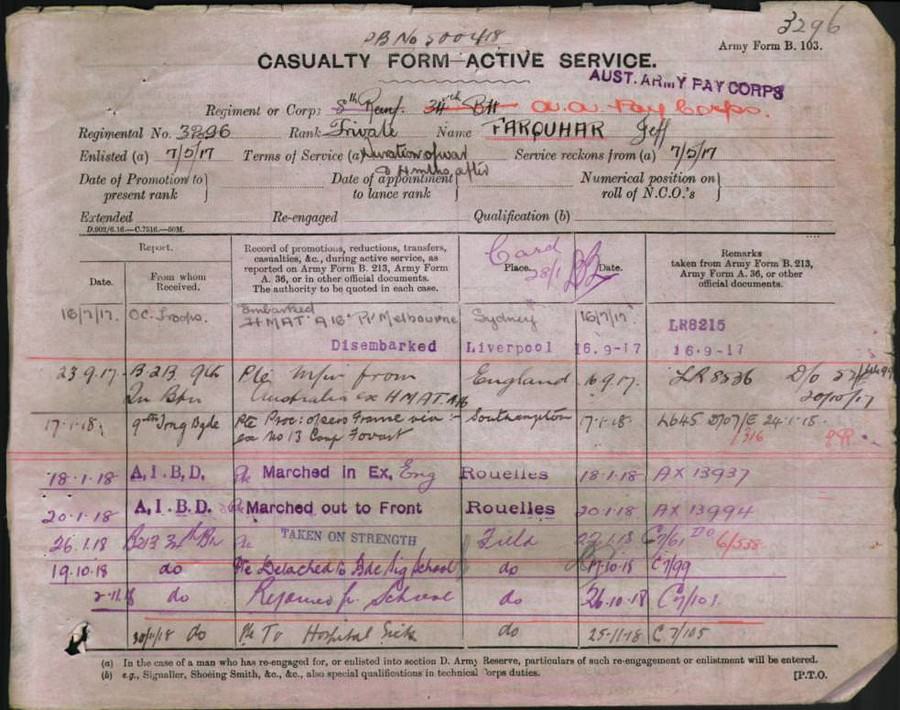 3296
Army Form B. 103.
CASUALTY FORM—ACTIVE SERVICE.
AUST. ARMY PAY CORPS
Regiment or Corps 8th Reinf. 34th Bn A.A. Pay Corps.
Regimental No. 3296 Rank Private Name FARQUHAR Jeff
Enlisted (a) 7/5/17 Terms of Service (a) Duration of war & 4 mths after Service reckons from (a) 7/5/17
Date of Promotion to present rank } Date of appointment to lance rank } Numerical position on roll of N.C.O.'s }
Extended Re-engaged Qualification (b)
D.902/6.16.—C.7516.—50M.
Report. Record of promotions, reductions, transfers, casualties, &c., during active service, as reported on Army Form B. 213, Army Form A. 36, or in other official documents. The authority to be quoted in each case. Place. Date. Remarks taken from Army Form B. 213, Army Form A. 36, or other official documents.
Date. From whom Received.
Card 28/1
16/7/17. O.C. Troops. Embarked HMAT A16 Melbourne Sydney 16/7/17
LR8215
Disembarked Liverpool 16.9-17 16-9-17
23.9.17 B213 9th Bn Pte M/in from Australia ex HMAT A16 England 16.9.17. LR 8536 D/O 20/10/17
17.1.18 9th Trng Bgde Pte Proc: o/seas France via Southampton 17.1.18 L645 D/07/E 24.1.18
ex No 13 Camp Fovant 1/316
18.1.18 A.I.B.D. Marched in Ex. Eng Rouelles 18.1.18 AX 13937
20.1.18 A.I.B.D. Marched out to Front Rouelles 20.1.18 AX 13994
26.1.18 B213 34th Bn TAKEN ON STRENGTH Field C7/61 DO 6/558
19.10.18 do Pte Detached to Bde Sig School do 17.10.18 C7/99
2.11.18 do Rejoined fr. School do 26.10.18 C7/101
30/11/18 do Pte To Hospital Sick do 25-11-18 C7/105
(a) In the case of a man who has re-engaged for, or enlisted into section D. Army Reserve, particulars of such re-engagement or enlistment will be entered.
(b) e.g., Signaller, Shoeing Smith, &c., &c., also special qualifications in technical Corps duties. [P.T.O.